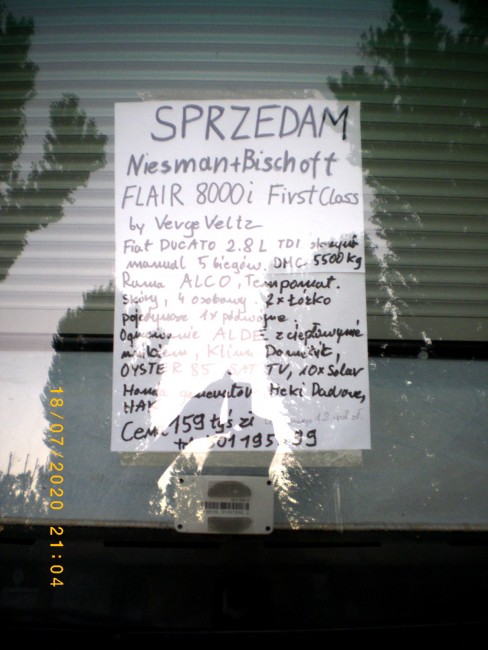 SPRZEDAM
Niesman+Bischoff
FLAIR 8000i First Class
by VergeVeltz
Fiat DUCATO 2.8 L TDI skrzynia
manual 5 biegów. DMC 5500 kg
Rama ALCO, Tempomat.
Skóry, 4 osobowy 2x Łóżko
pojedyncze 1x podwójne.
Ogrzewanie ALDE z ciepłowymie
Klima Dometic,
OYSTER 85 SAT TV, 10x Solar
Honda Heki
HAK
Cena 159 tyś zł
18/07/2020 21:04